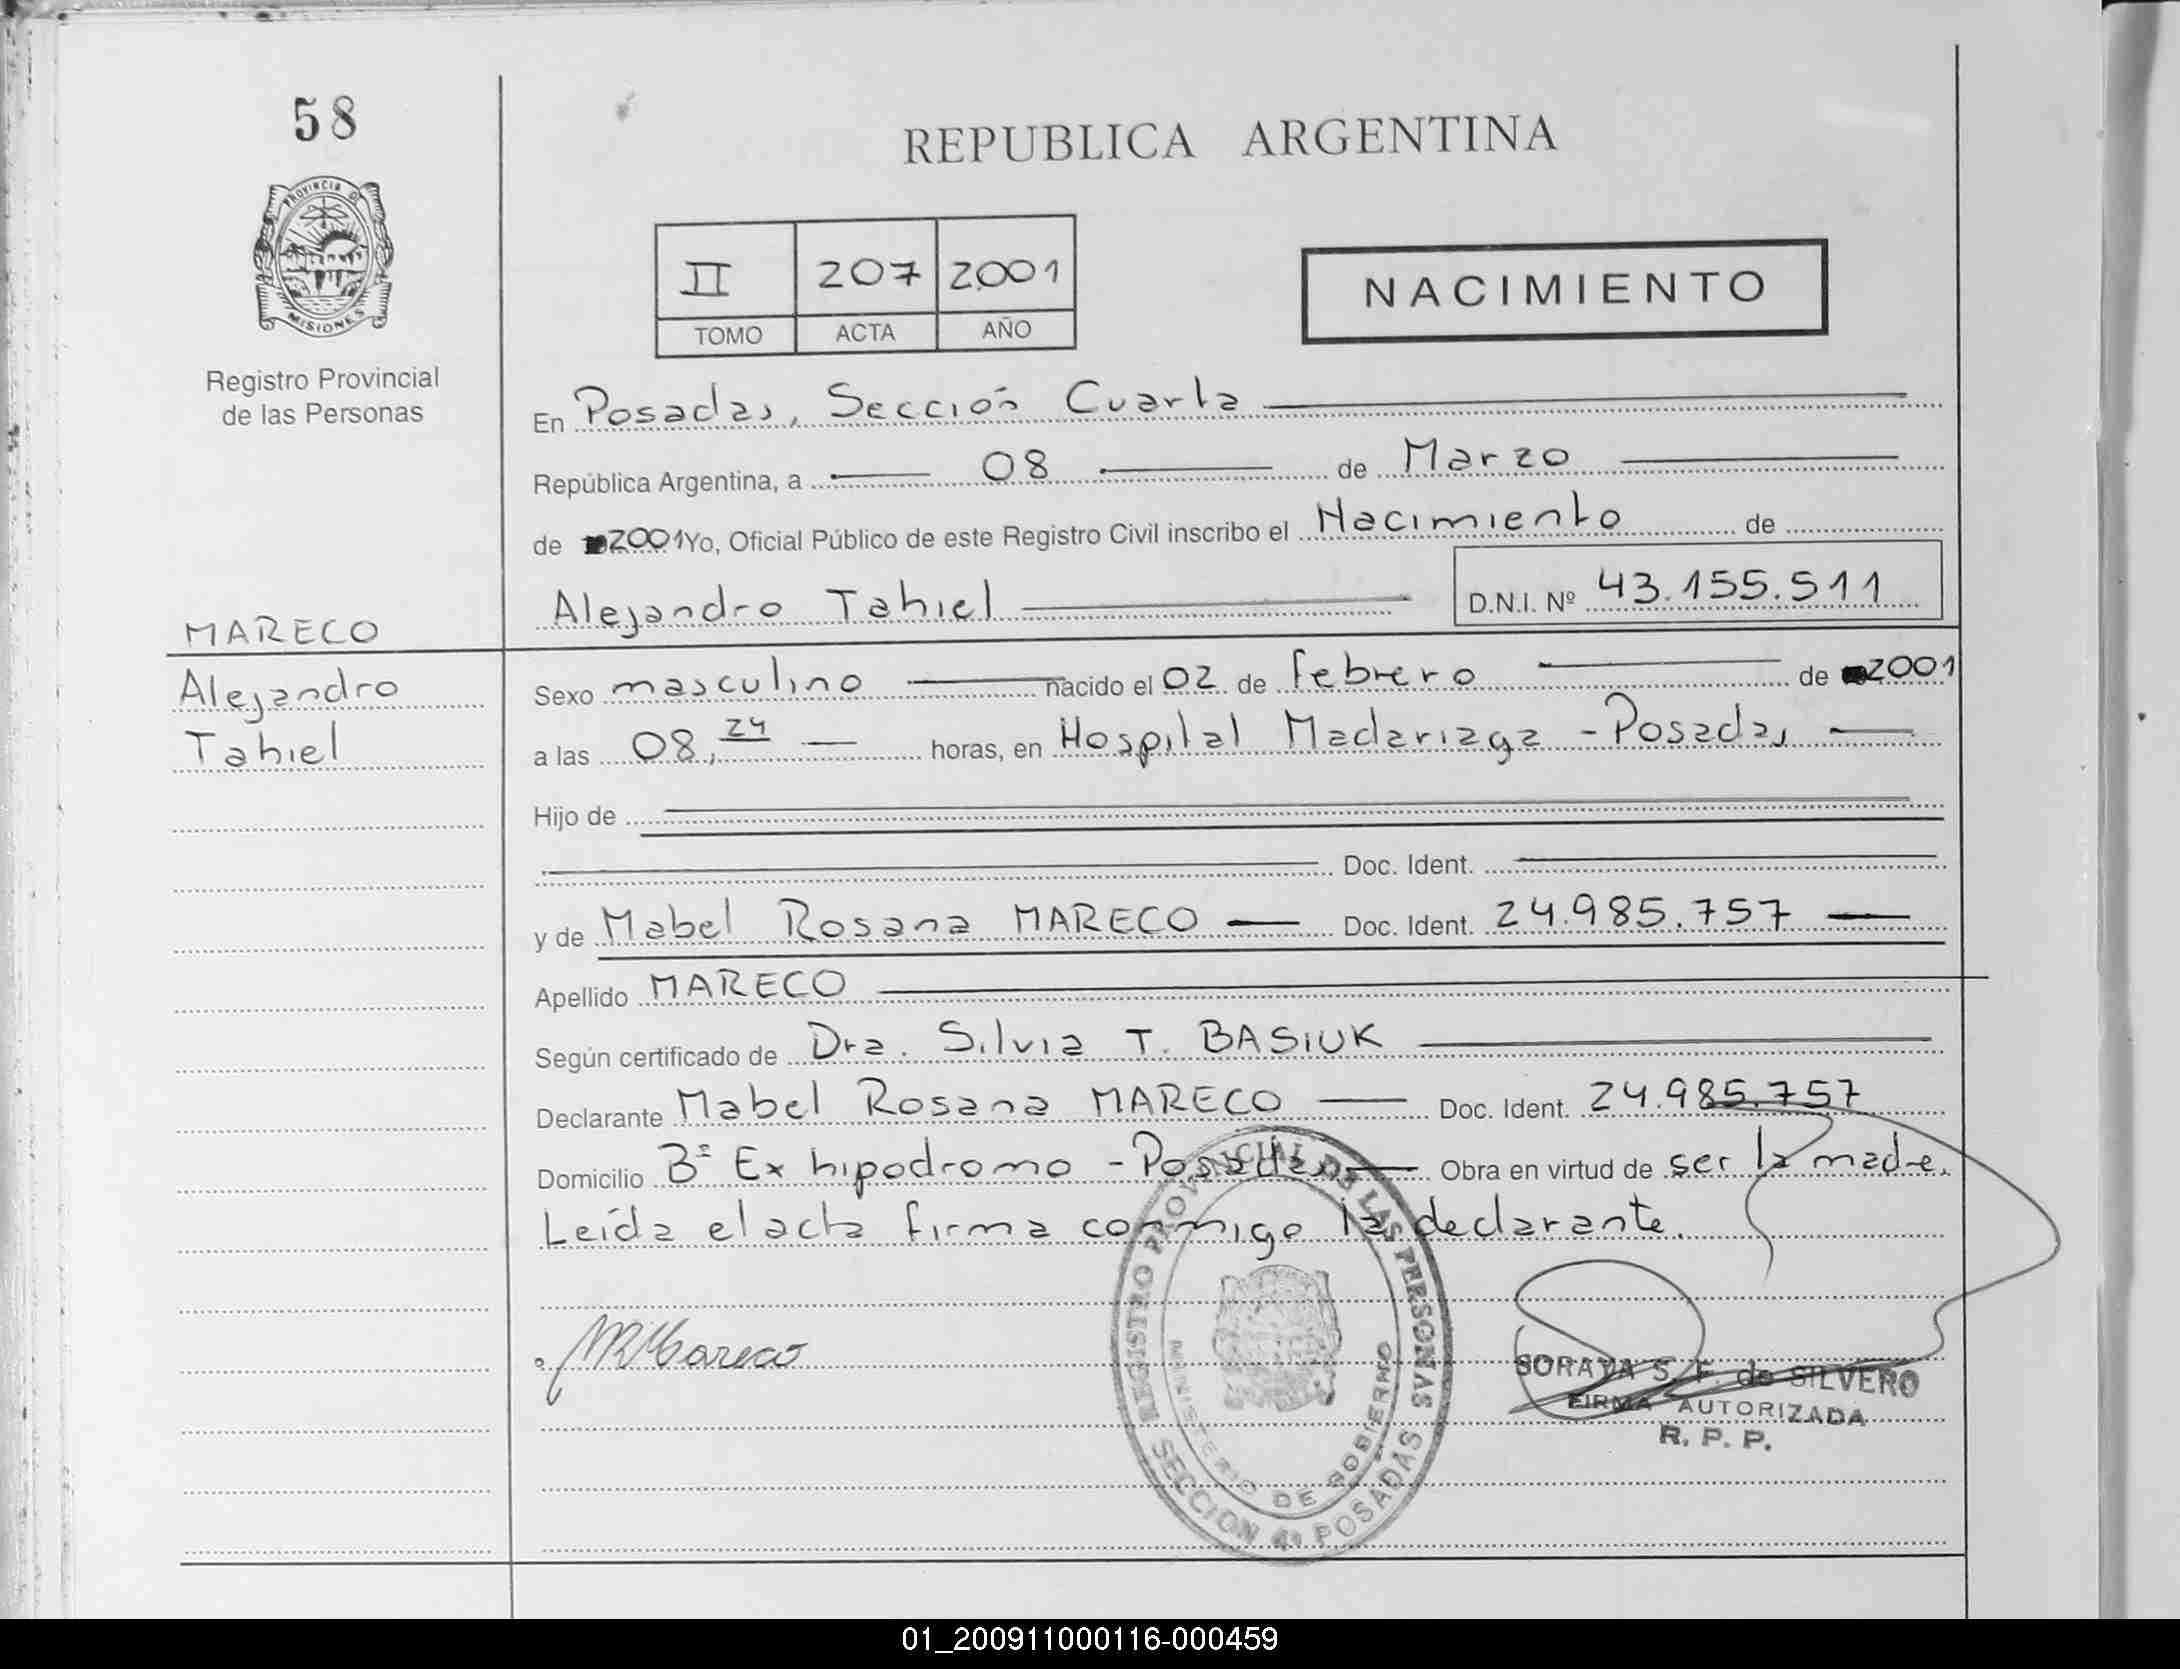 58
PROVINCIA DE
MISIONES
Registro Provincial
de las Personas
REPUBLICA ARGENTINA
II 207 2001
TOMO ACTA AÑO
NACIMIENTO
En Posadas, Sección Cuarta
República Argentina, a 08 de Marzo
de 2001 Yo, Oficial Público de este Registro Civil inscribo el Nacimiento de
Alejandro Tahiel D.N.I. Nº 43.155.511
MARECO
Alejandro
Tahiel
Sexo masculino nacido el 02 de febrero de 2001
a las 08,24 horas, en Hospital Madariaga - Posadas
Hijo de
Doc. Ident.
y de Mabel Rosana MARECO Doc. Ident. 24.985.757
Apellido MARECO
Según certificado de Dra. Silvia T. BASIUK
Declarante Mabel Rosana MARECO Doc. Ident. 24.985.757
Domicilio Bº Ex hipodromo - Posadas Obra en virtud de ser la madre.
Leída el acta firma conmigo la declarante.
REGISTRO PROVINCIAL DE LAS PERSONAS
MINISTERIO DE GOBIERNO
SECCION 4ª POSADAS
MRMareco
SORAYA S. F. de SILVERO
FIRMA AUTORIZADA
R. P. P.
01_200911000116-000459